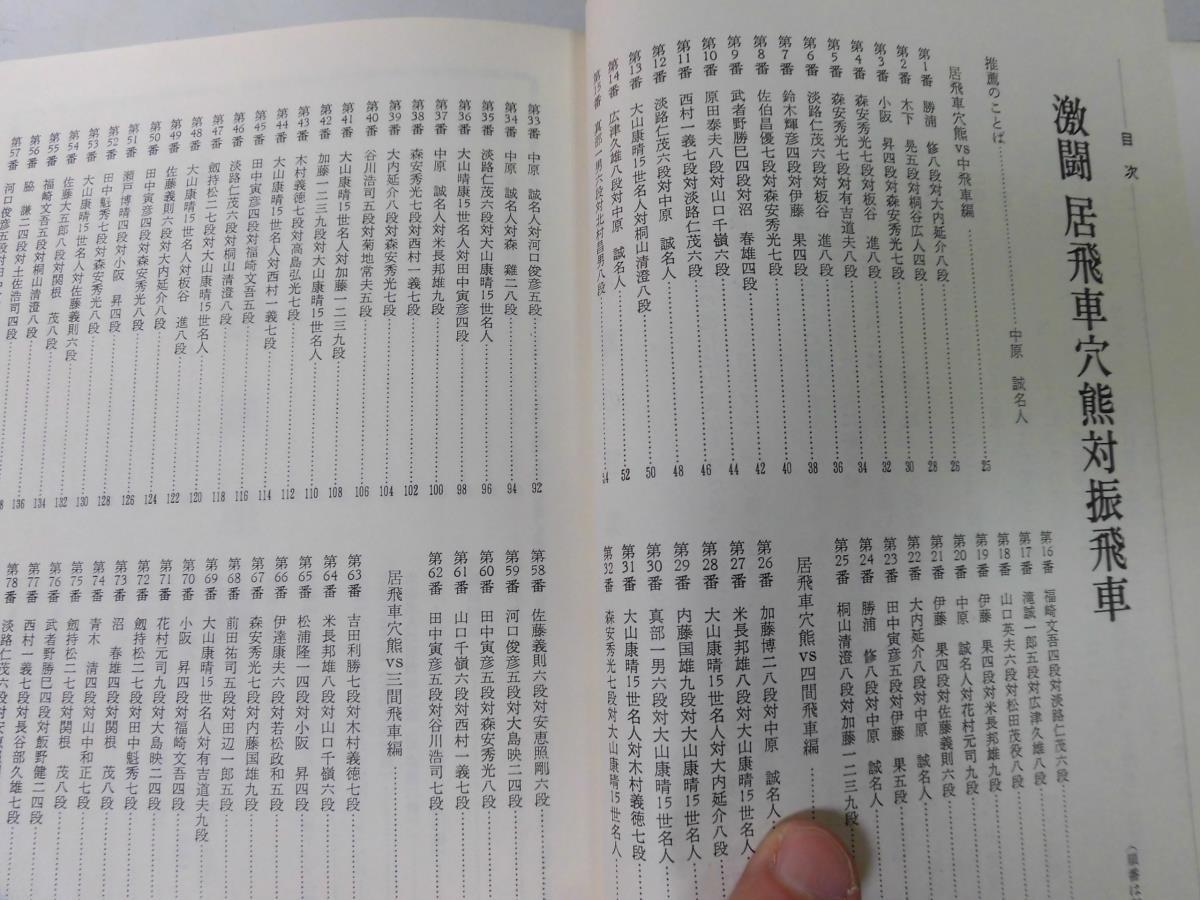 目次
激闘 居飛車穴熊対振飛車
推薦のことば………中原 誠名人
居飛車穴熊vs中飛車編………25
第1番 勝浦 修八段対大内延介八段………26
第2番 木下 晃五段対桐谷広人四段………28
第3番 小阪 昇四段対森安秀光七段………30
第4番 森安秀光七段対有吉道夫八段………32
第5番 森安秀光七段対板谷 進八段………34
第6番 淡路仁茂六段対板谷 進八段………36
第7番 鈴木輝彦四段対伊藤 果四段………38
第8番 佐伯昌優七段対森安秀光七段………40
第9番 武者野勝巳四段対沼 春雄四段………42
第10番 原田泰夫八段対山口千嶺六段………44
第11番 西村一義七段対淡路仁茂六段………46
第12番 淡路仁茂六段対中原 誠名人………48
第13番 大山康晴15世名人対桐山清澄八段………50
第14番 広津久雄八段対中原 誠名人………52
第15番 真部一男六段対北村昌男八段………54
第16番 福崎文吾四段対淡路仁茂六段
第17番 滝誠一郎五段対広津久雄八段
第18番 山口英夫六段対松田茂役八段
第19番 伊藤 果四段対米長邦雄九段
第20番 中原 誠名人対花村元司九段
第21番 伊藤 果四段対佐藤義則六段
第22番 大内延介八段対中原 誠名人
第23番 田中寅彦五段対伊藤 果五段
第24番 勝浦 修八段対中原 誠名人
第25番 桐山清澄八段対加藤一二三九段
居飛車穴熊vs四間飛車編
第26番 加藤博二八段対中原 誠名人
第27番 米長邦雄八段対大山康晴15世名人
第28番 大山康晴15世名人対大内延介八段
第29番 内藤国雄九段対大山康晴15世名人
第30番 真部一男六段対大山康晴15世名人
第31番 大山康晴15世名人対木村義徳七段
第32番 森安秀光七段対大山康晴15世名人
(順番は
第33番 中原 誠名人対河口俊彦五段………92
第34番 中原 誠名人対森 雞二八段………94
第35番 淡路仁茂六段対大山康晴15世名人………96
第36番 大山康晴15世名人対田中寅彦四段………98
第37番 中原 誠名人対米長邦雄九段………100
第38番 森安秀光七段対西村一義七段………102
第39番 大内延介八段対森安秀光七段………104
第40番 谷川浩司五段対菊地常夫五段………106
第41番 大山康晴15世名人対加藤一二三九段………108
第42番 加藤一二三九段対大山康晴15世名人………110
第43番 木村義徳七段対高島弘光七段………112
第44番 大山康晴15世名人対西村一義七段………114
第45番 田中寅彦四段対福崎文吾五段………116
第46番 淡路仁茂六段対桐山清澄八段………118
第47番 剱持松二七段対大山康晴15世名人………120
第48番 大山康晴15世名人対板谷 進八段………122
第49番 佐藤義則六段対大内延介八段………124
第50番 田中寅彦四段対森安秀光八段………126
第51番 瀬戸博晴四段対小阪 昇四段………128
第52番 田中魁秀七段対森安秀光八段………130
第53番 大山康晴15世名人対佐藤義則六段………132
第54番 佐藤大五郎八段対関根 茂八段………134
第55番 福崎文吾五段対桐山清澄八段………136
第56番 脇 謙二四段対土佐浩司四段
第57番 河口俊彦五段対田中
第58番 佐藤義則六段対安恵照剛六段
第59番 河口俊彦五段対大島映二四段
第60番 田中寅彦五段対森安秀光八段
第61番 山口千嶺六段対西村一義七段
第62番 田中寅彦五段対谷川浩司七段
居飛車穴熊vs三間飛車編
第63番 吉田利勝七段対木村義徳七段
第64番 米長邦雄八段対山口千嶺六段
第65番 松浦隆一四段対小阪 昇四段
第66番 伊達康夫六段対若松政和五段
第67番 森安秀光七段対内藤国雄九段
第68番 前田祐司五段対田辺一郎五段
第69番 大山康晴15世名人対有吉道夫九段
第70番 小阪 昇四段対福崎文吾四段
第71番 花村元司九段対大島映二四段
第72番 剱持松二七段対田中魁秀七段
第73番 沼 春雄四段対関根 茂八段
第74番 青木 清四段対山中和正七段
第75番 剱持松二七段対関根 茂八段
第76番 武者野勝巳四段対飯野健二四段
第77番 西村一義七段対長谷部久雄七段
第78番 淡路仁茂六段対安恵照剛